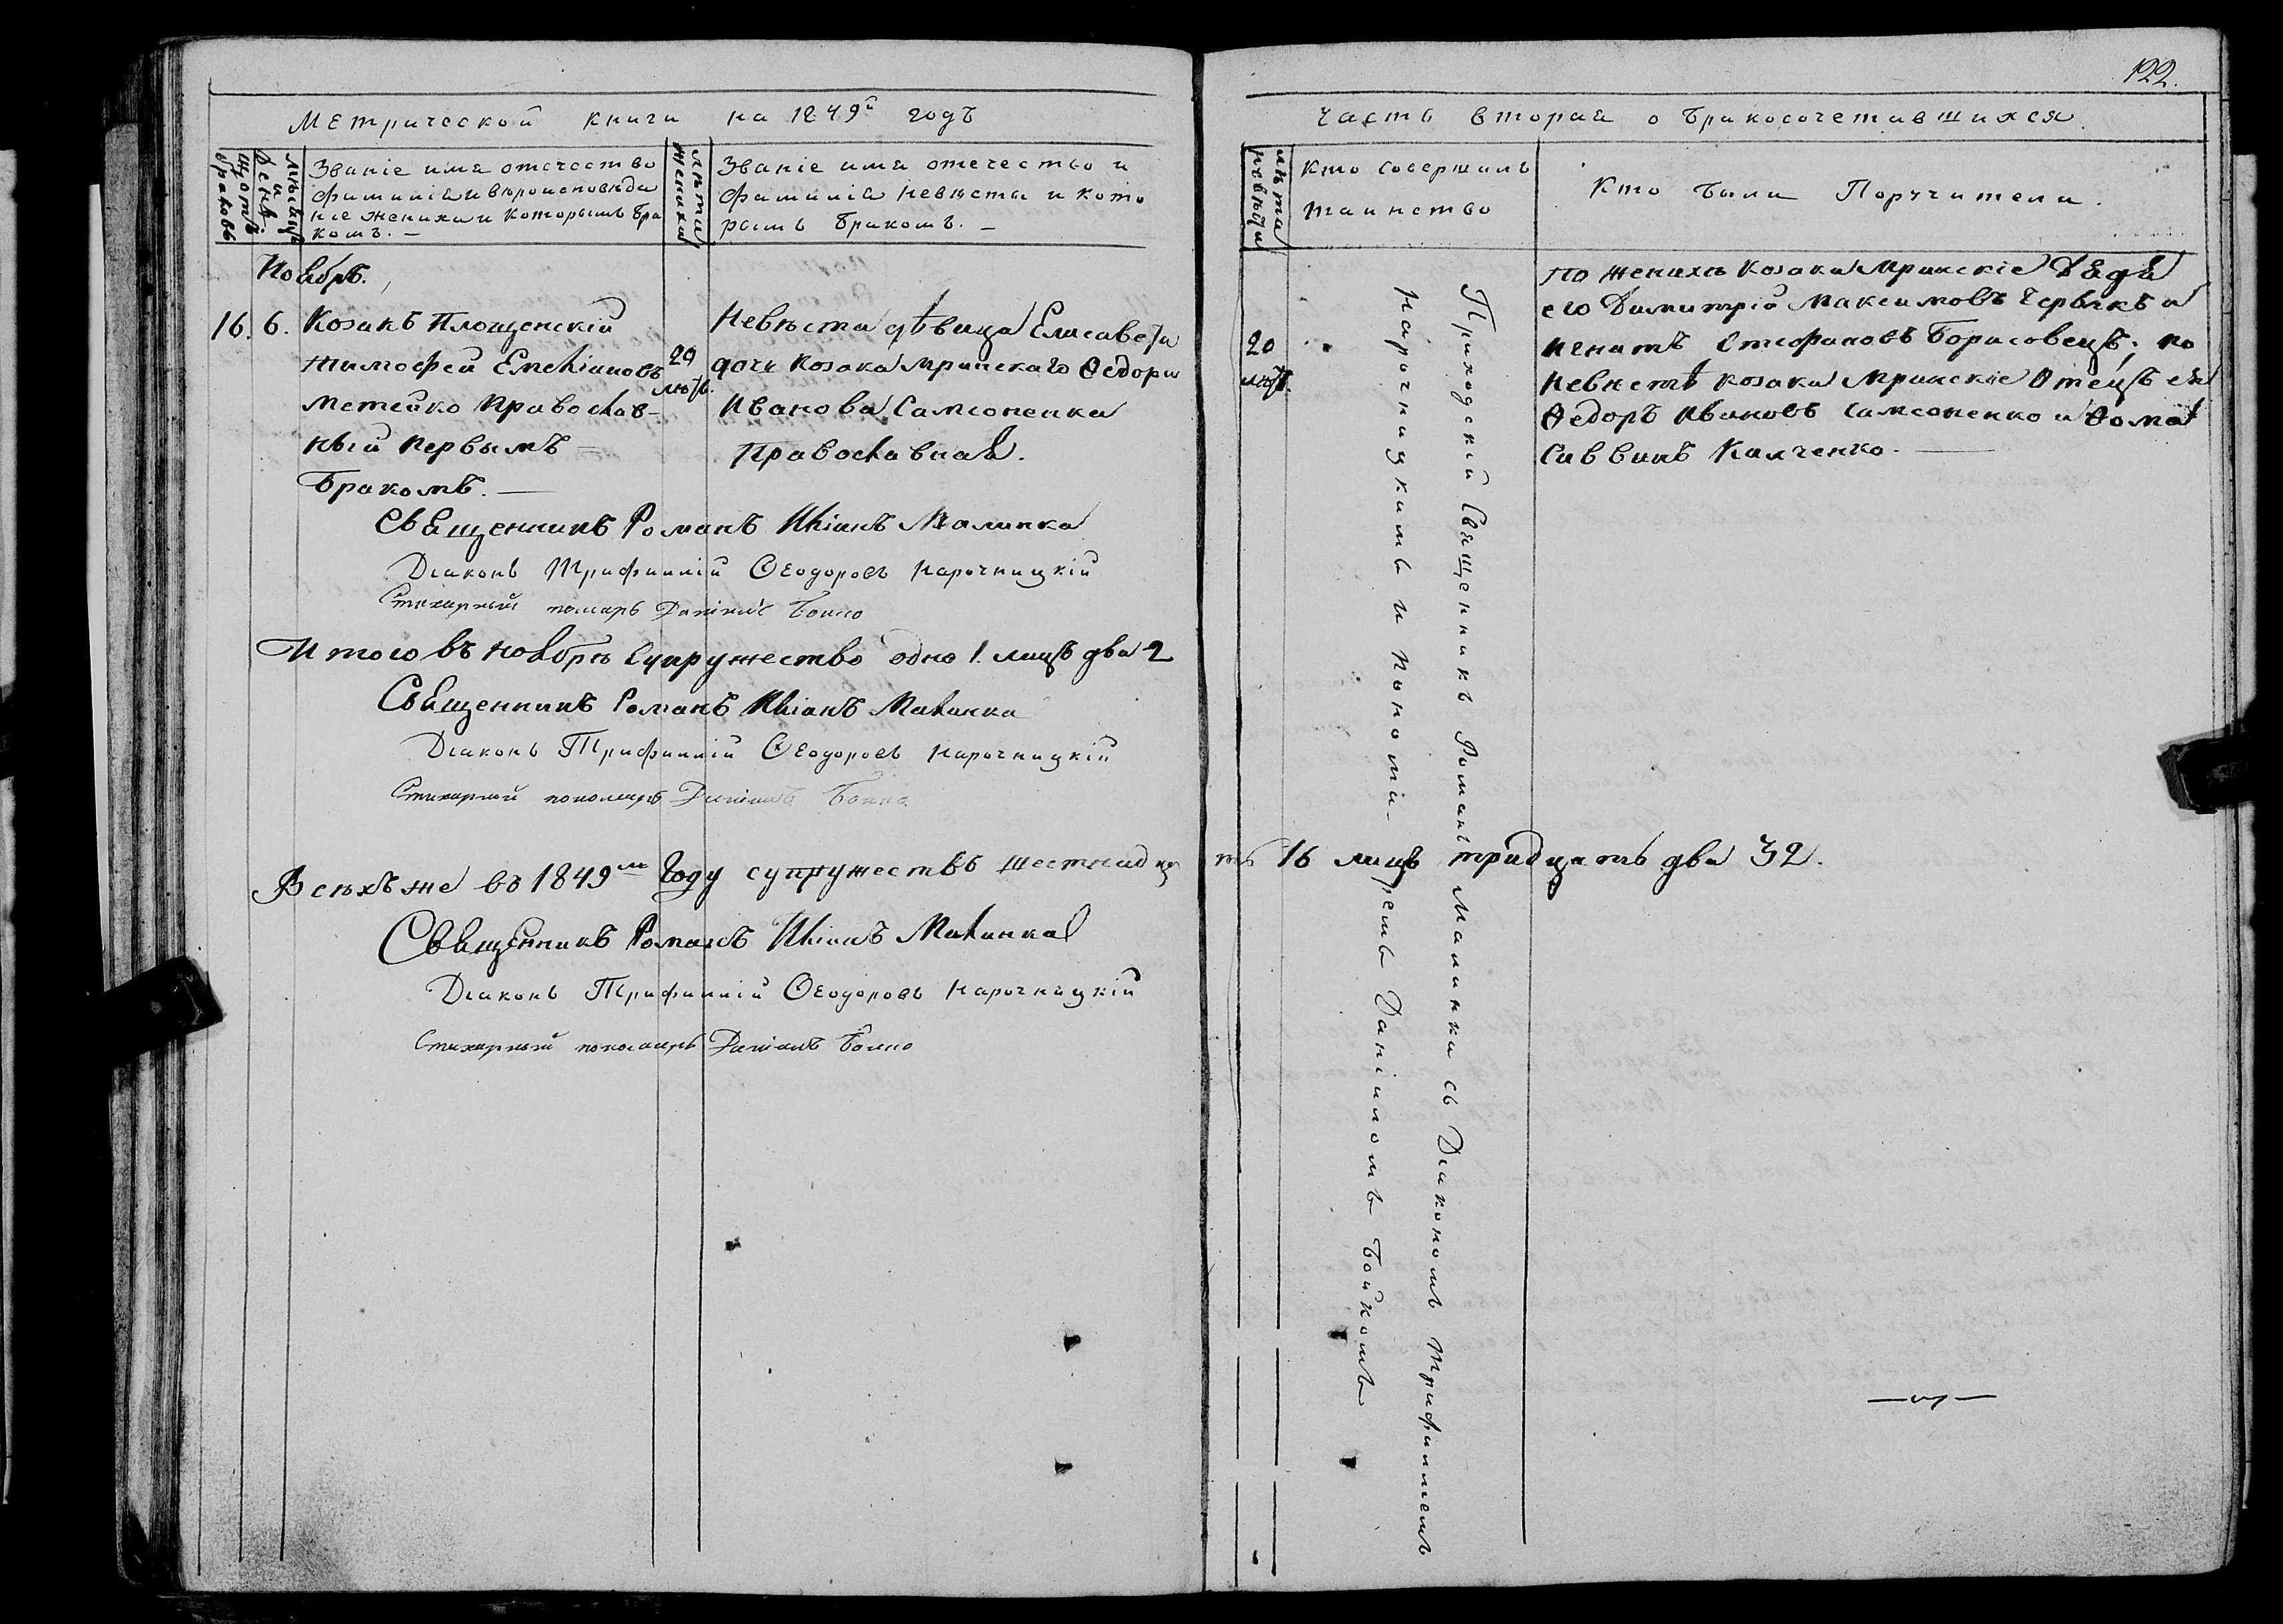 122.
Метрической книги на 1849й годъ
Часть вторая о бракосочетавшихся.
Щотъ браковъ
Мѣсяцъ и день.
Званіе имя отечество
фамиліа и вѣроисповѣда
ніе жениха и которымъ бра
комъ. —
Лѣта жениха
Званіе имя отечество и
фамиліа невѣсты и кото
рымъ бракомъ. —
Лѣта невѣсты
Кто совершалъ
таинство
Кто были Поручители.
Ноябрь.
16. 6. Козакъ Площенскій
Тимофей Емеліановъ
Метейко православ-
ный первымъ —
Бракомъ. —
20
лѣтъ.
Невѣста дѣвица Елисавета
дочь козака Мринскаго Ѳедора
Иванова Самсоненка
Православная.
20
лѣтъ.
Приходскій Священникъ Романъ Малинка съ Діакономъ Трифиліемъ
Нарочницкимъ и пономаремъ Даніиломъ Бойкомъ
По женихѣ козаки Мринскіе дядя
его Димитрій Максимовъ Червякъ и
Игнатъ Стефановъ Борисовецъ; по
невѣстѣ козаки Мринскіе Отецъ ея
Ѳедоръ Ивановъ Самсоненко и Ѳома
Саввинъ Калченко. —
Священникъ Романъ Иліинъ Малинка
Діаконъ Трифиллій Ѳеодоровъ Нарочницкій
Стихарный понамарь Даніилъ Бойко
Итого въ ноябрѣ супружество одно 1. лицъ два 2
Священникъ Романъ Иліинъ Малинка
Діаконъ Трифиллій Ѳеодоровъ Нарочницкій
Стихарный пономарь Даніилъ Бойко
Всѣхъ же въ 1849мъ Году супружествъ шестнадцать 16 лицъ тридцать два 32.
Священникъ Романъ Иліинъ Малинка
Діаконъ Трифиллій Ѳеодоровъ Нарочницкій
Стихарный пономарь Даніилъ Бойко